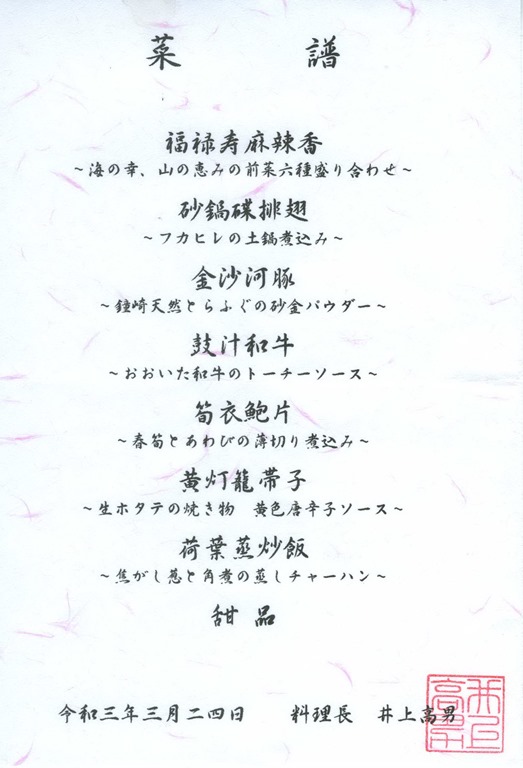 菜 譜
福禄寿麻辣香
～海の幸、山の恵みの前菜六種盛り合わせ～
砂鍋碟排翅
～フカヒレの土鍋煮込み～
金沙河豚
～鐘崎天然とらふぐの砂金パウダー～
鼓汁和牛
～おおいた和牛のトーチーソース～
筍衣鮑片
～春筍とあわびの薄切り煮込み～
黄灯籠帯子
～生ホタテの焼き物 黄色唐辛子ソース～
荷葉蒸炒飯
～焦がし葱と角煮の蒸しチャーハン～
甜品
令和三年三月二四日 料理長 井上高男
井上高男